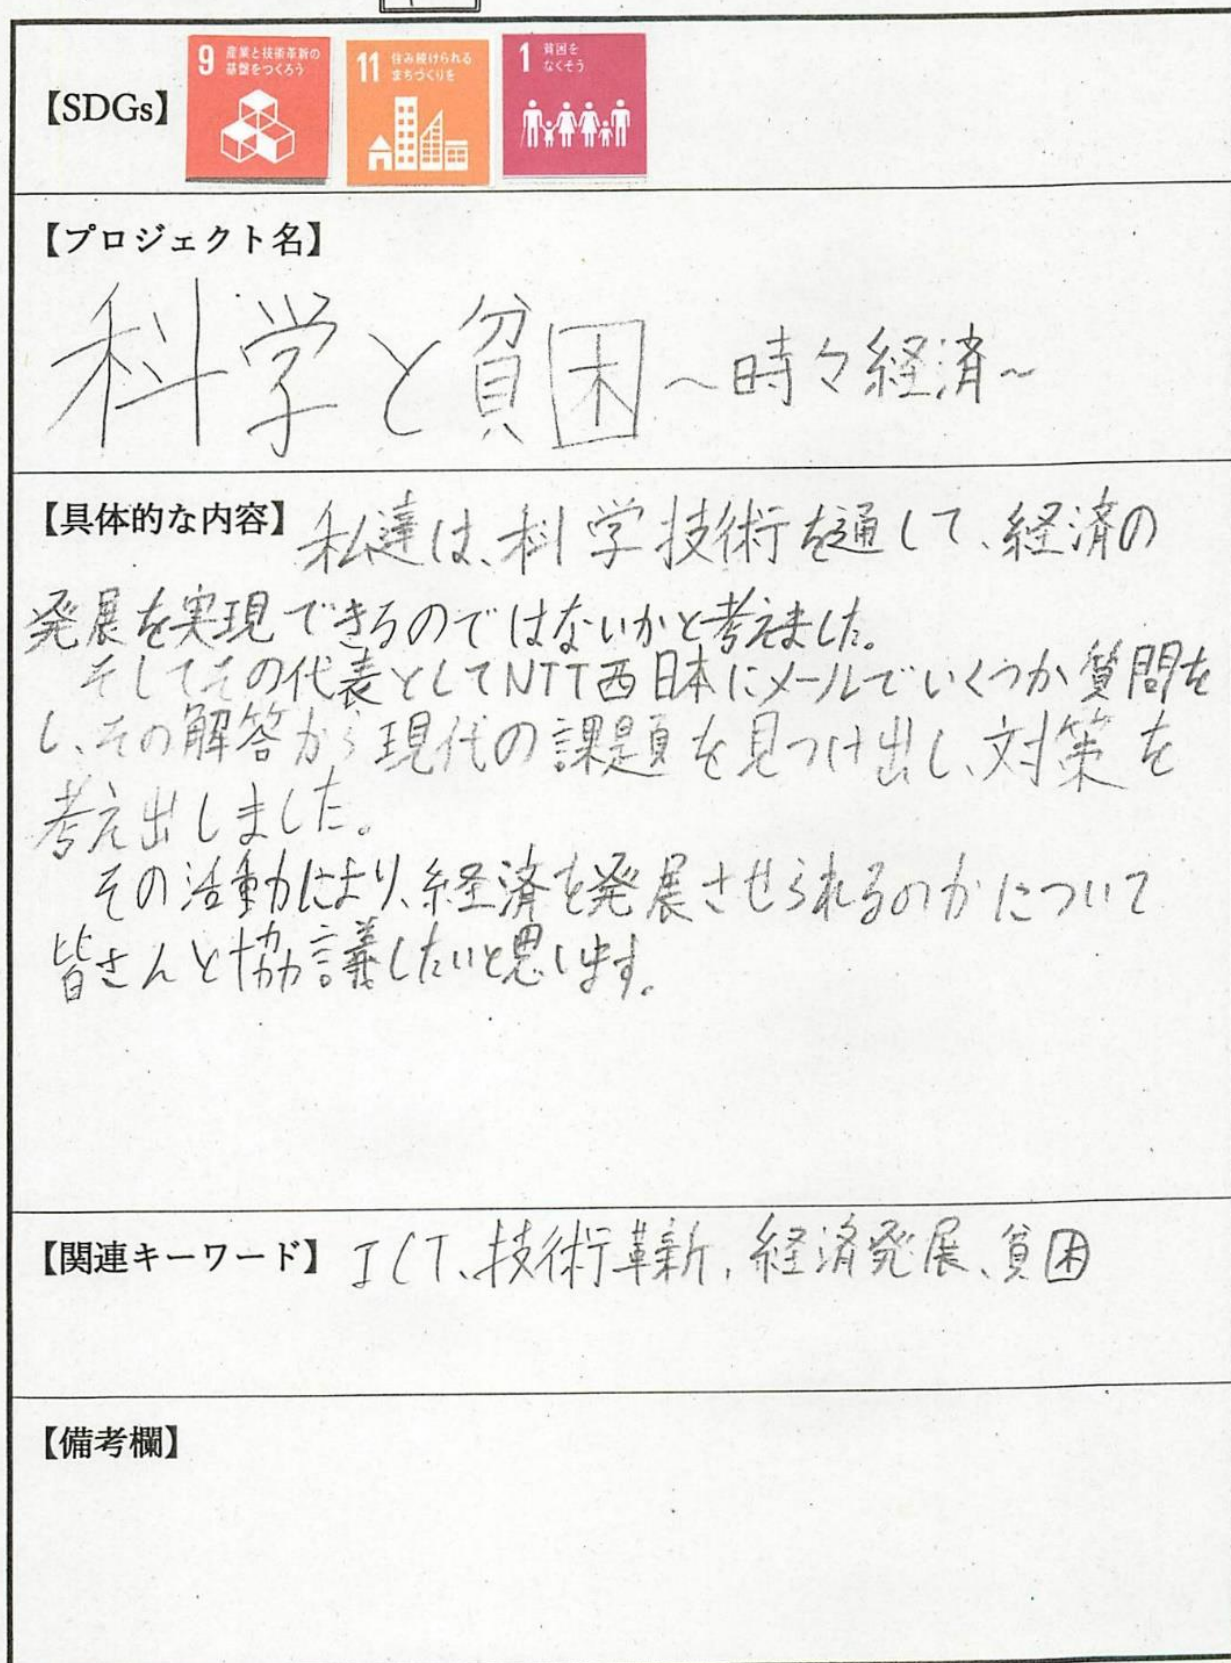 【SDGs】
9 産業と技術革新の
基盤をつくろう
11 住み続けられる
まちづくりを
1 貧困を
なくそう
【プロジェクト名】
科学と貧困 ～時々経済～
【具体的な内容】私達は、科学技術を通して、経済の
発展を実現できるのではないかと考えました。
そしてその代表としてNTT西日本にメールでいくつか質問を
し、その解答から現代の課題を見つけ出し、対策を
考え出しました。
その活動により、経済を発展させられるのかについて
皆さんと協議したいと思います。
【関連キーワード】ICT、技術革新、経済発展、貧困
【備考欄】